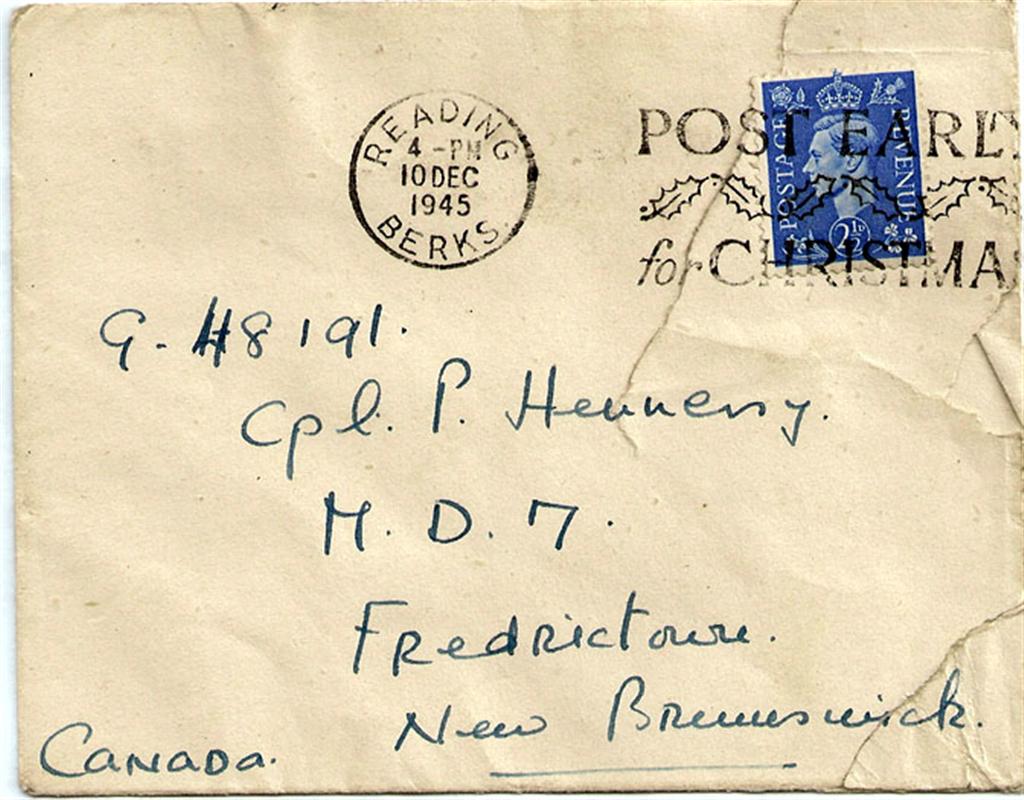 READING
4 - PM
10 DEC
1945
BERKS.
POST EARLY
for CHRISTMAS
POSTAGE
REVENUE
2½D
G. H8191.
Cpl. P. Hennessy.
M. D. 7.
Fredrictown.
New Brunswick.
Canada.